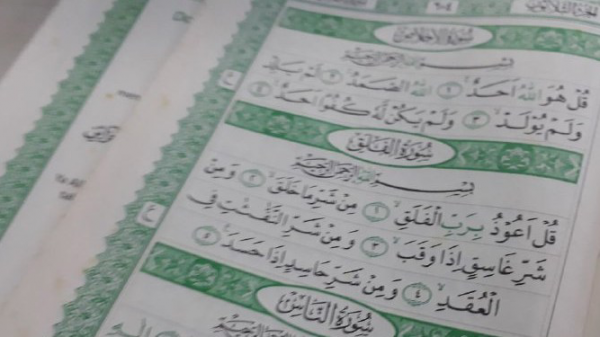 ٦٠٤
سُورَةُ الْاِخْلَاصِ
بِسْمِ اللّٰهِ الرَّحْمٰنِ الرَّحِيْمِ
قُلْ هُوَ اللّٰهُ اَحَدٌۚ ١ اَللّٰهُ الصَّمَدُۚ ٢ لَمْ يَلِدْ
وَلَمْ يُوْلَدْۙ ٣ وَلَمْ يَكُنْ لَّهٗ كُفُوًا اَحَدٌ ٤
سُورَةُ الْفَلَقِ
بِسْمِ اللّٰهِ الرَّحْمٰنِ الرَّحِيْمِ
قُلْ اَعُوْذُ بِرَبِّ الْفَلَقِۙ ١ مِنْ شَرِّ مَا خَلَقَۙ ٢ وَمِنْ
شَرِّ غَاسِقٍ اِذَا وَقَبَۙ ٣ وَمِنْ شَرِّ النَّفّٰثٰتِ فِى
الْعُقَدِۙ ٤ وَمِنْ شَرِّ حَاسِدٍ اِذَا حَسَدَ ٥
سُورَةُ النَّاسِ